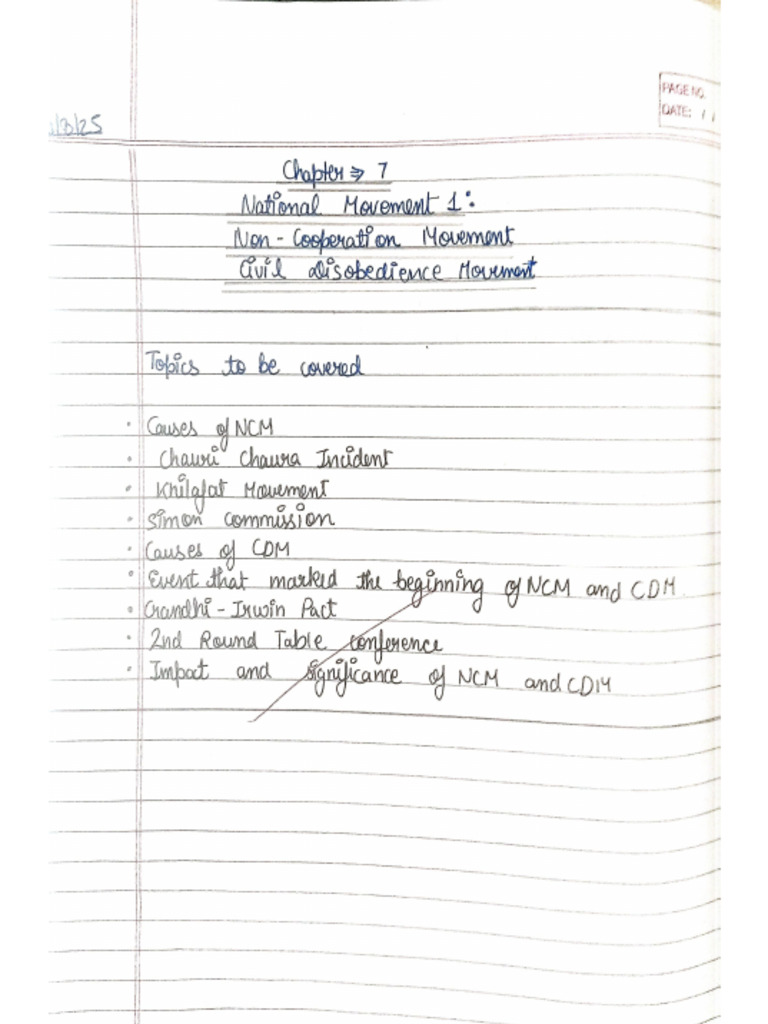 PAGE NO.
DATE: / /
/3/25
Chapter ⇒ 7
National Movement 1:
Non-Cooperation Movement
Civil Disobedience Movement
Topics to be covered
• Causes of NCM
• Chauri Chaura Incident
• Khilafat Movement
• Simon Commission
• Causes of CDM
• Event that marked the beginning of NCM and CDM
• Gandhi-Irwin Pact
• 2nd Round Table conference
• Impact and significance of NCM and CDM